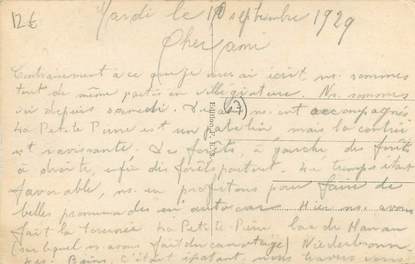 12€
Mardi le 10 septembre 1929
Cher ami
Contrairement à ce que je avais écrit ns. sommes
tout de même partis en villégiature. Ns. sommes
ici depuis samedi. ns. ont accompagnés
La Petite Pierre est un patelin, mais la contrée
est ravissante. Des forêts, à gauche, des forêts
à droite, enfin des forêts partout. Le temps étant
favorable, ns. en profitons pour faire de
belles promenades en autocar. Hier ns. avons
fait la tournée La Petite Pierre, lac de Hanau
(sur lequel ns. avons fait du canotage) Niederbronn
les Bains. C'était épatant ns. avons
67